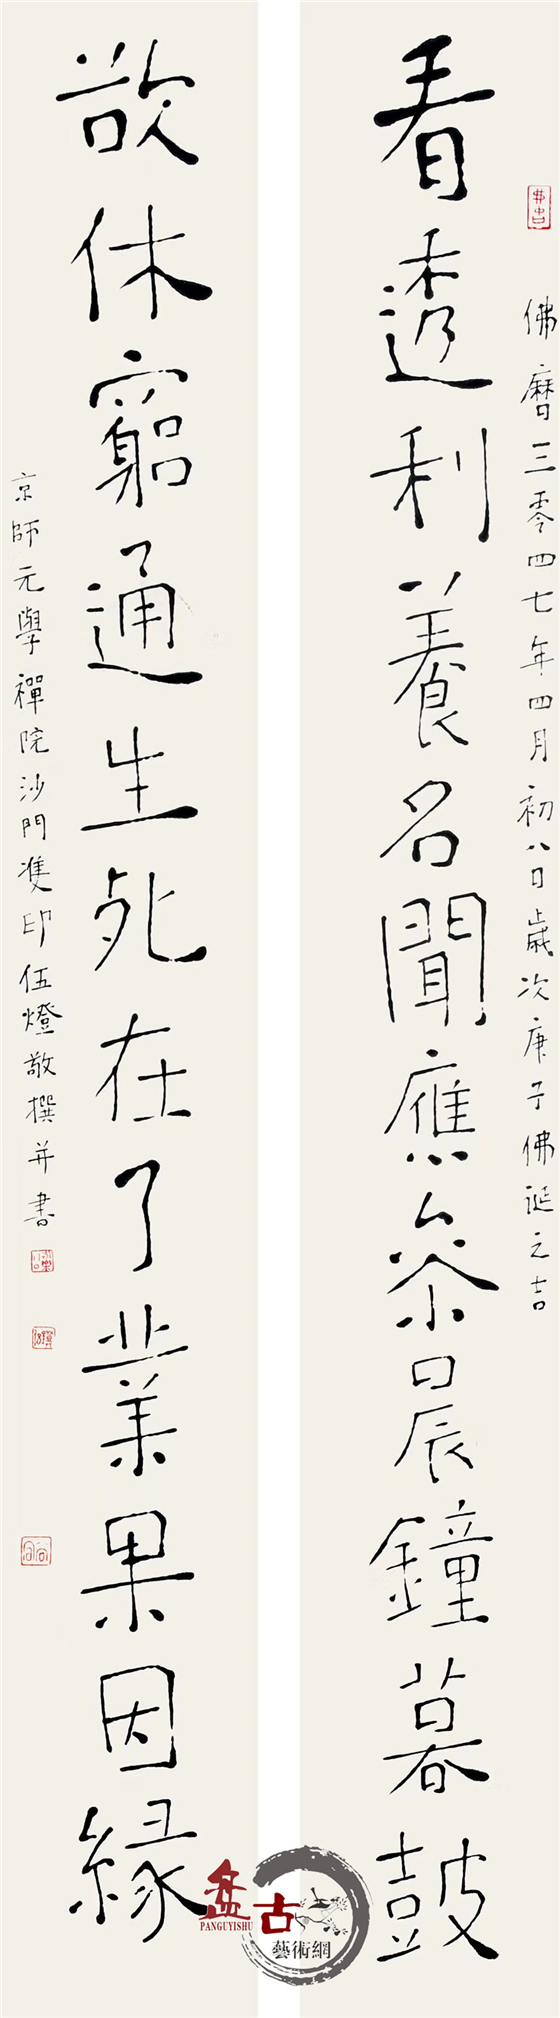 佛曆三零四七年四月初八日歲次庚子佛誕之吉
看透利養名聞應參晨鐘暮鼓
欲休窮通生死在了業果因緣
京師元學禪院沙門雙印伍燈敬撰并書
盘古
PANGUYISHU
藝術網